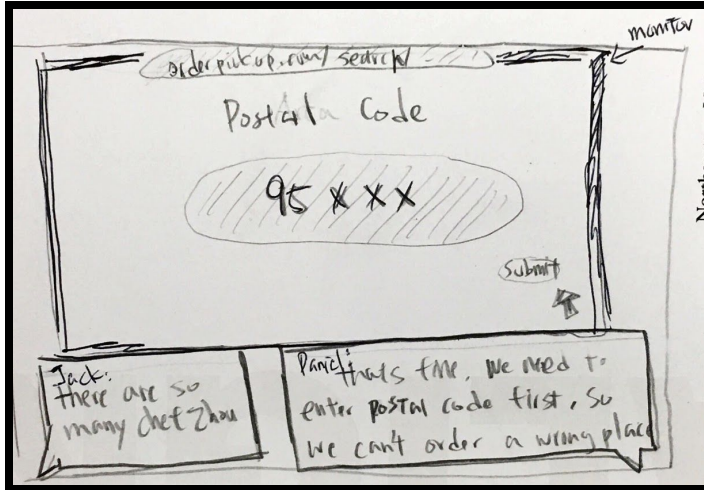 monitor
orderpickup.com/search/
Postal Code
95 * * *
Submit
Jack:
there are so
many chef Zhou
thats fine, we need to
enter postal code first, so
we can't order a wrong place